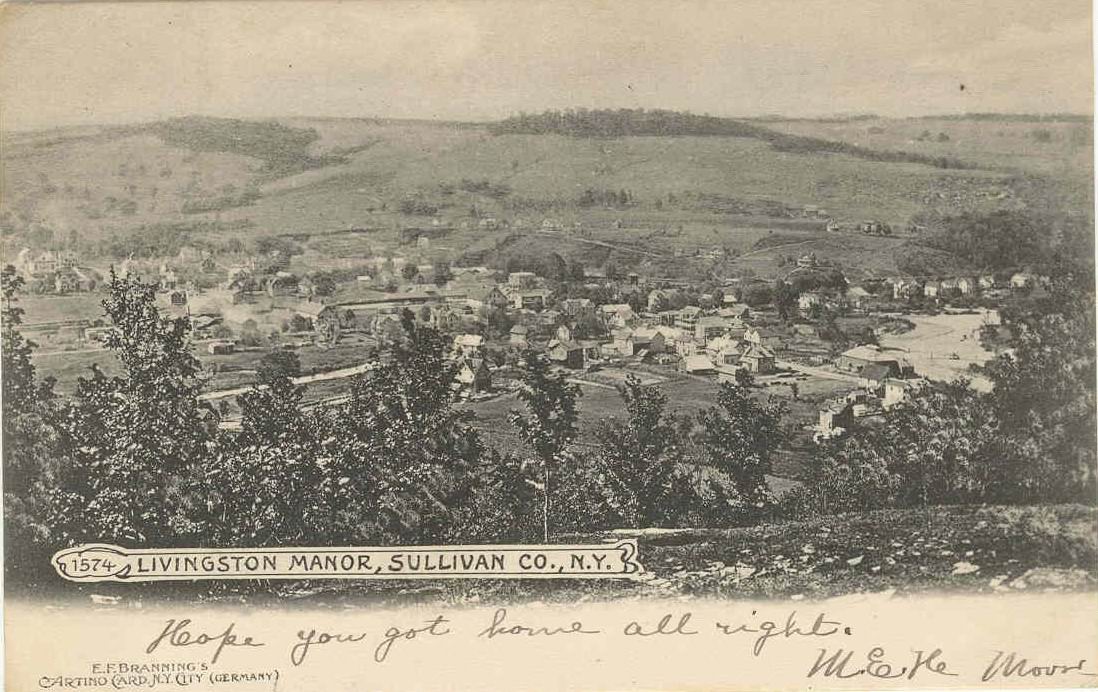 1574 LIVINGSTON MANOR, SULLIVAN CO., N.Y.
Hope you got home all right.
E.F. BRANNING'S
CARTINO CARD, N.Y. CITY (GERMANY)
Moore